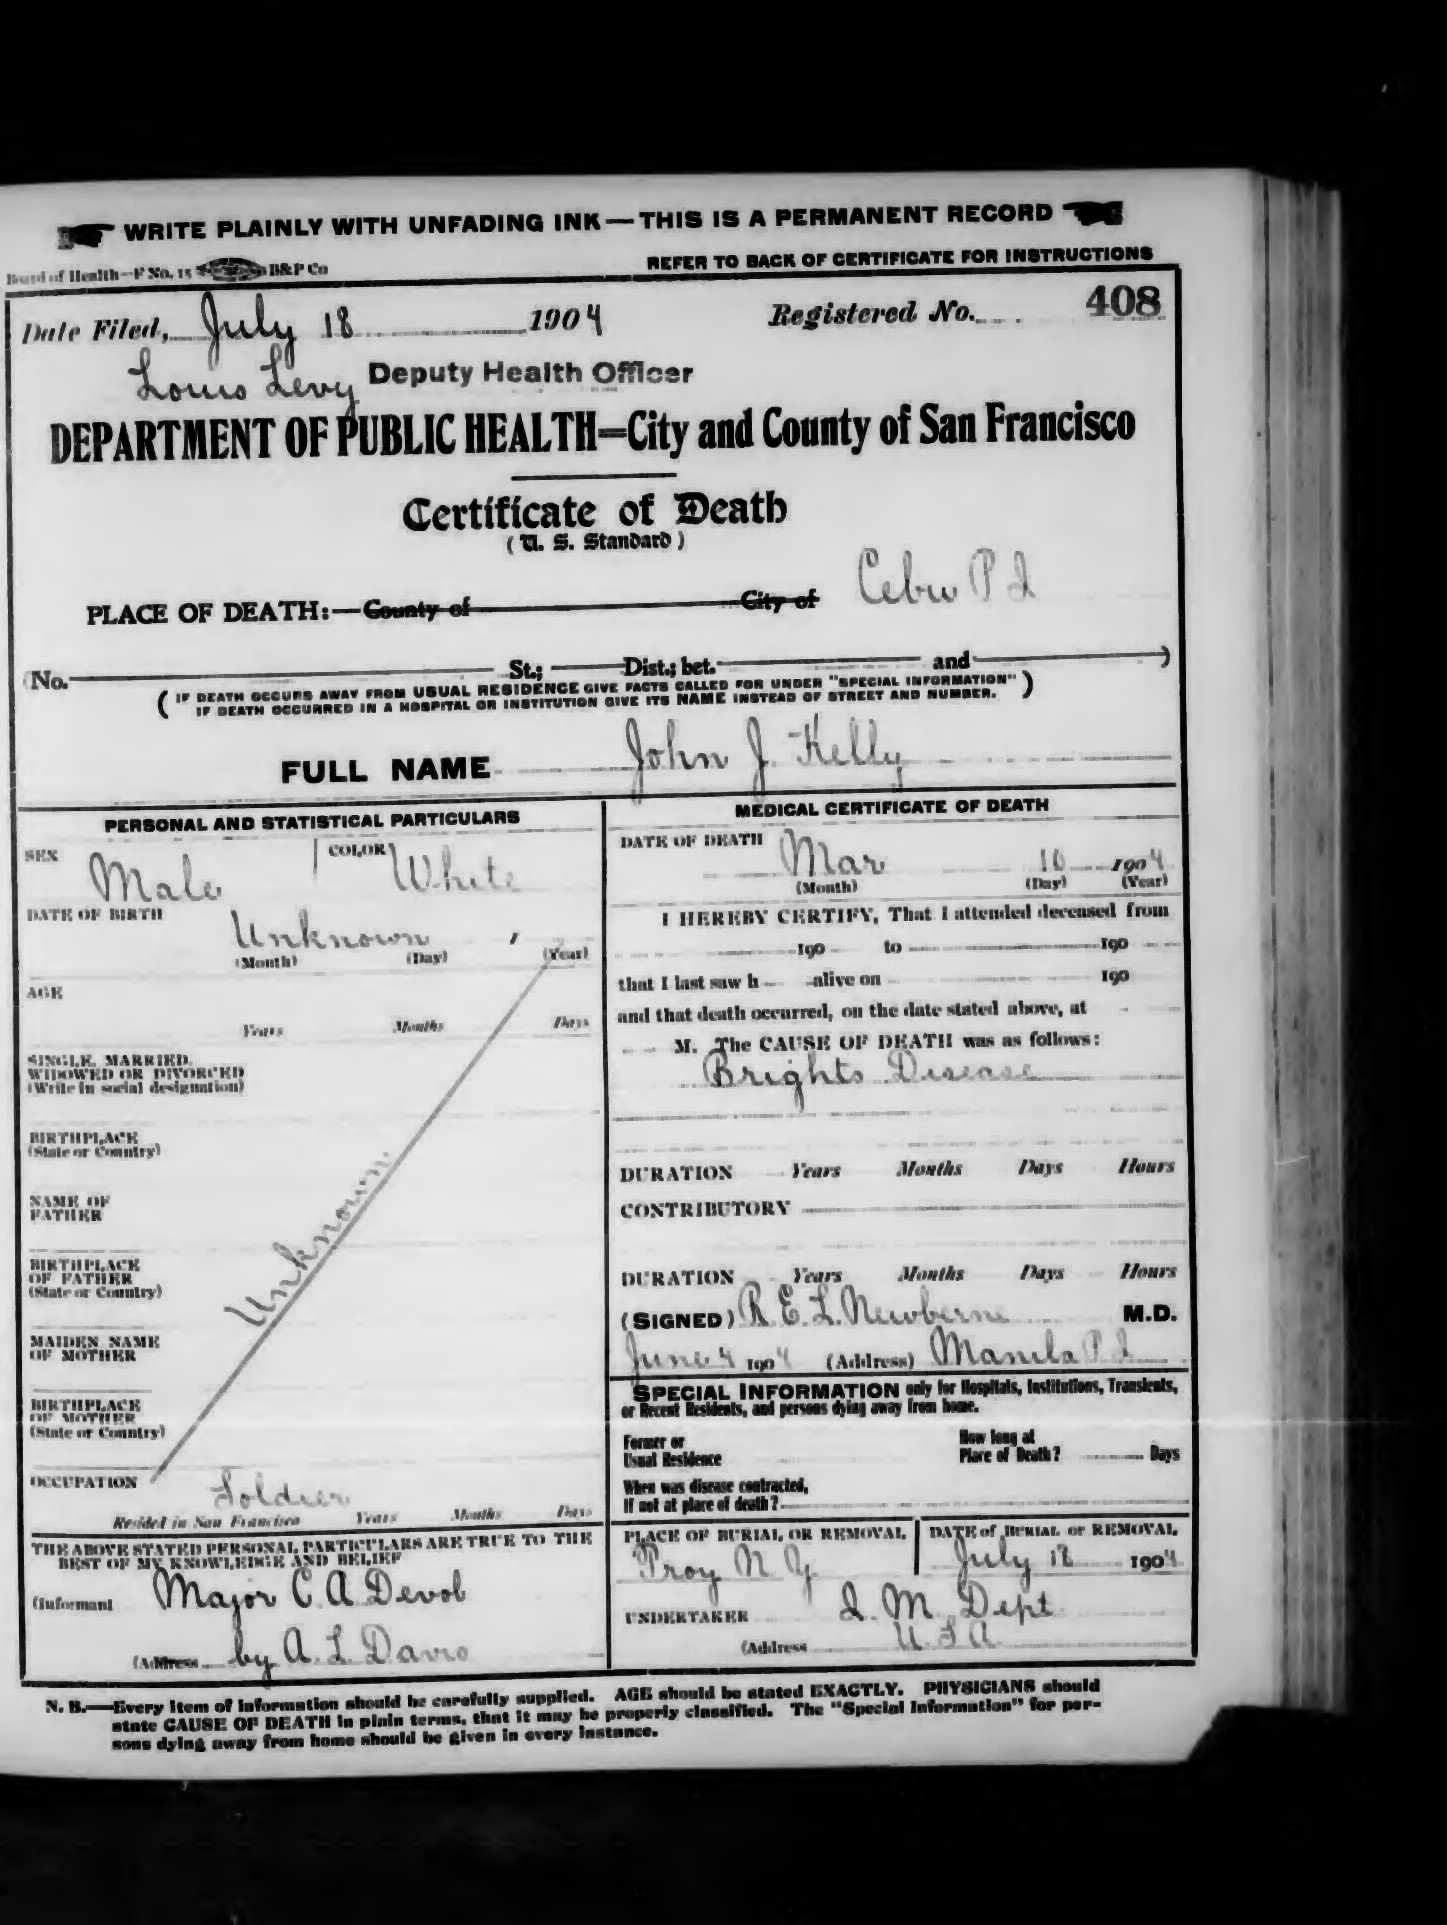 WRITE PLAINLY WITH UNFADING INK—THIS IS A PERMANENT RECORD
Board of Health—F No. 15 B&P Co
REFER TO BACK OF CERTIFICATE FOR INSTRUCTIONS
Date Filed, July 18 1904 Registered No. 408
Louis Levy Deputy Health Officer
DEPARTMENT OF PUBLIC HEALTH=City and County of San Francisco
Certificate of Death
(U. S. Standard)
PLACE OF DEATH:—County of City of Cebu P I
(No. St.; Dist.; bet. and )
(IF DEATH OCCURS AWAY FROM USUAL RESIDENCE GIVE FACTS CALLED FOR UNDER "SPECIAL INFORMATION"
IF DEATH OCCURRED IN A HOSPITAL OR INSTITUTION GIVE ITS NAME INSTEAD OF STREET AND NUMBER.)
FULL NAME John J. Kelly
PERSONAL AND STATISTICAL PARTICULARS
SEX Male COLOR White
DATE OF BIRTH Unknown
(Month) (Day) (Year)
AGE
Years Months Days
SINGLE, MARRIED,
WIDOWED OR DIVORCED
(Write in social designation)
BIRTHPLACE
(State or Country)
NAME OF
FATHER
Unknown
BIRTHPLACE
OF FATHER
(State or Country)
MAIDEN NAME
OF MOTHER
BIRTHPLACE
OF MOTHER
(State or Country)
OCCUPATION Soldier
Resided in San Francisco Years Months Days
THE ABOVE STATED PERSONAL PARTICULARS ARE TRUE TO THE
BEST OF MY KNOWLEDGE AND BELIEF
(Informant Major C. A. Devol
(Address by A. L. Davis
MEDICAL CERTIFICATE OF DEATH
DATE OF DEATH Mar 10 1904
(Month) (Day) (Year)
I HEREBY CERTIFY, That I attended deceased from
190 to 190
that I last saw h alive on 190
and that death occurred, on the date stated above, at
M. The CAUSE OF DEATH was as follows:
Brights Disease
DURATION Years Months Days Hours
CONTRIBUTORY
DURATION Years Months Days Hours
(SIGNED) R. E. L. Newberne M.D.
June 4 1904 (Address) Manila P I
SPECIAL INFORMATION only for Hospitals, Institutions, Transients,
or Recent Residents, and persons dying away from home.
Former or
Usual Residence
How long at
Place of Death? Days
When was disease contracted,
If not at place of death?
PLACE OF BURIAL OR REMOVAL DATE of BURIAL or REMOVAL
Troy N. Y. July 18 1904
UNDERTAKER Q. M. Dept
(Address U. S. A.
N. B.—Every item of information should be carefully supplied. AGE should be stated EXACTLY. PHYSICIANS should
state CAUSE OF DEATH in plain terms, that it may be properly classified. The "Special Information" for per-
sons dying away from home should be given in every instance.